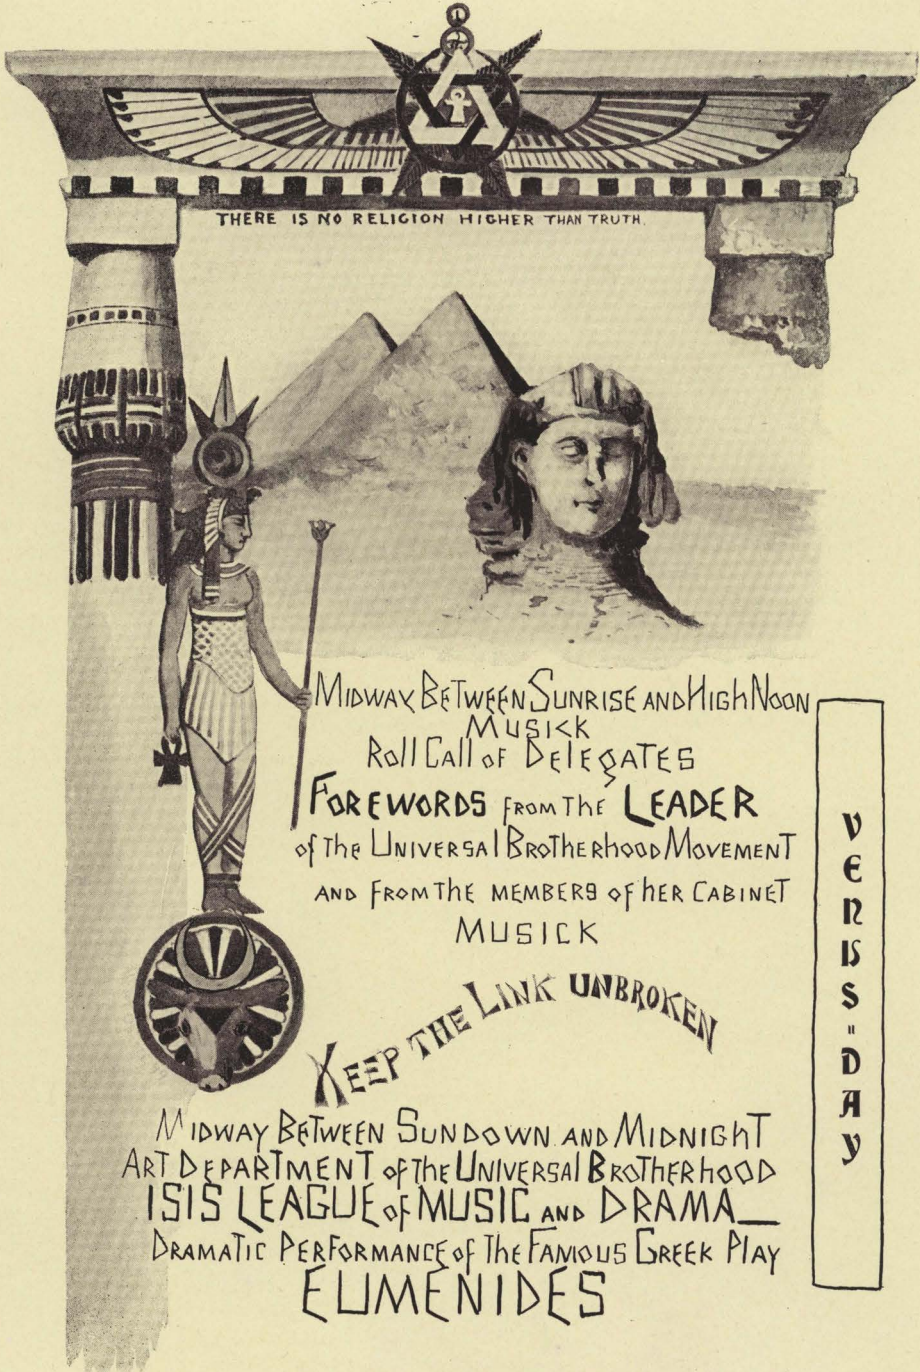 THERE IS NO RELIGION HIGHER THAN TRUTH.
MIDWAY BETWEEN SUNRISE AND HIGH NOON
MUSICK
ROLL CALL OF DELEGATES
FOREWORDS FROM THE LEADER
of the UNIVERSAL BROTHERHOOD MOVEMENT
AND FROM THE MEMBERS of HER CABINET
MUSICK
KEEP THE LINK UNBROKEN
MIDWAY BETWEEN SUNDOWN AND MIDNIGHT
ART DEPARTMENT of the UNIVERSAL BROTHERHOOD
ISIS LEAGUE of MUSIC AND DRAMA_
DRAMATIC PERFORMANCE of THE FAMOUS GREEK PLAY
EUMENIDES
VENUS=DAY